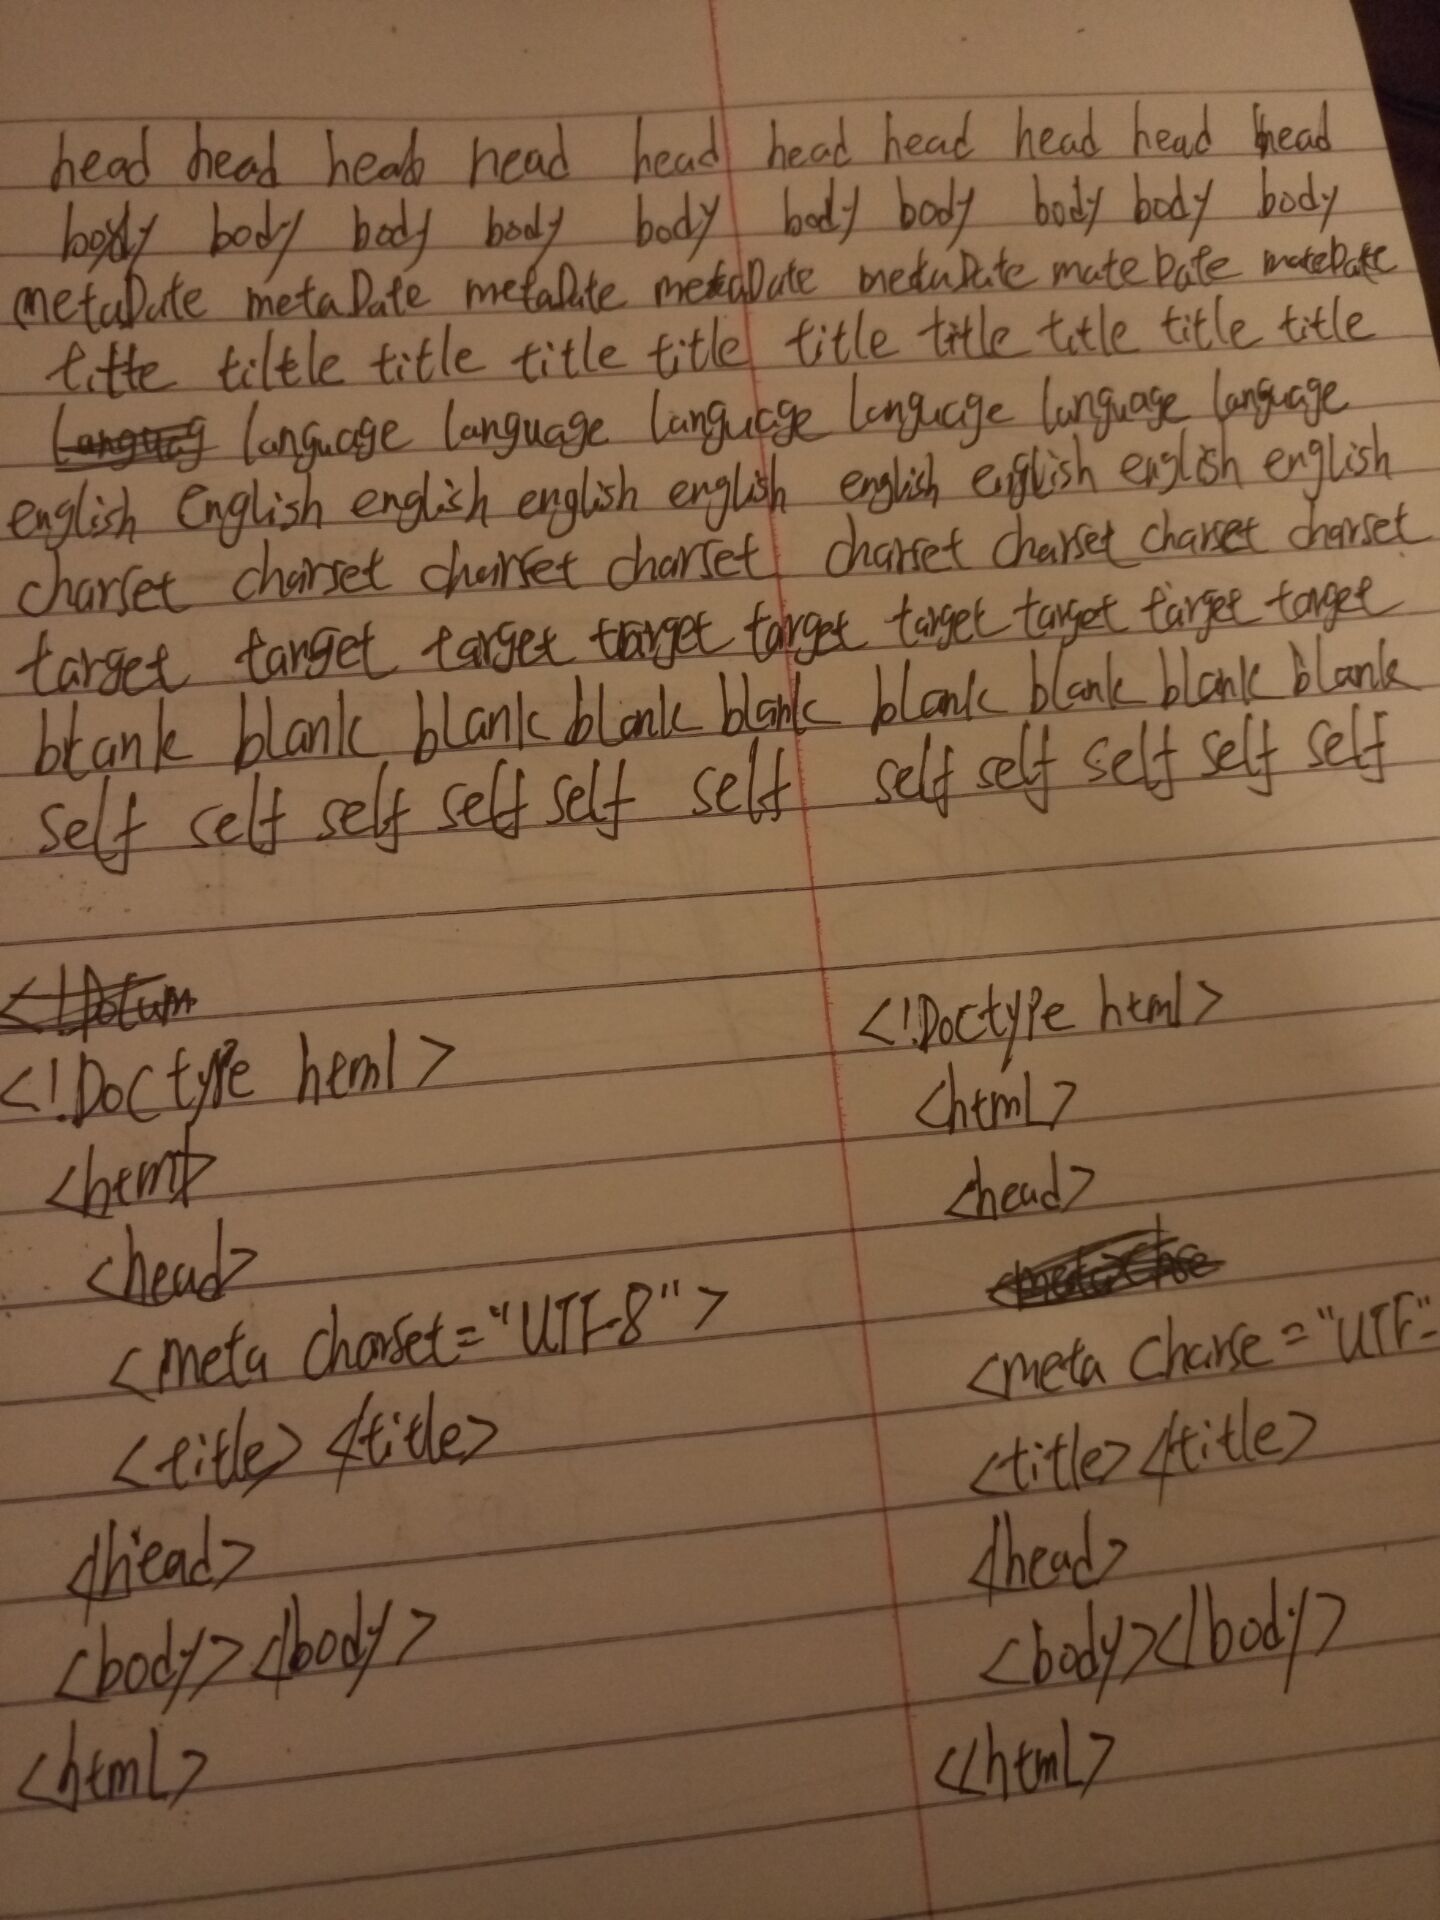 head head head head head head head head head head
body body body body body body body body body body
metaDate metaDate metaDate metaDate metaDate mateDate mateDate
title tiltle title title title title title title title title
language language language language language language
english English english english english english english english english
charset charset charset charset charset charset charset charset
target target target target target target target target target
blank blank blank blank blank blank blank blank blank
self self self self self self self self self self self
<!Doctype html>
<html>
<head>
<meta charset="UTF-8">
<title></title>
</head>
<body></body>
<html>
<!Doctype html>
<html>
<head>
<meta Charse="UTF-
<title></title>
</head>
<body></body>
</html>